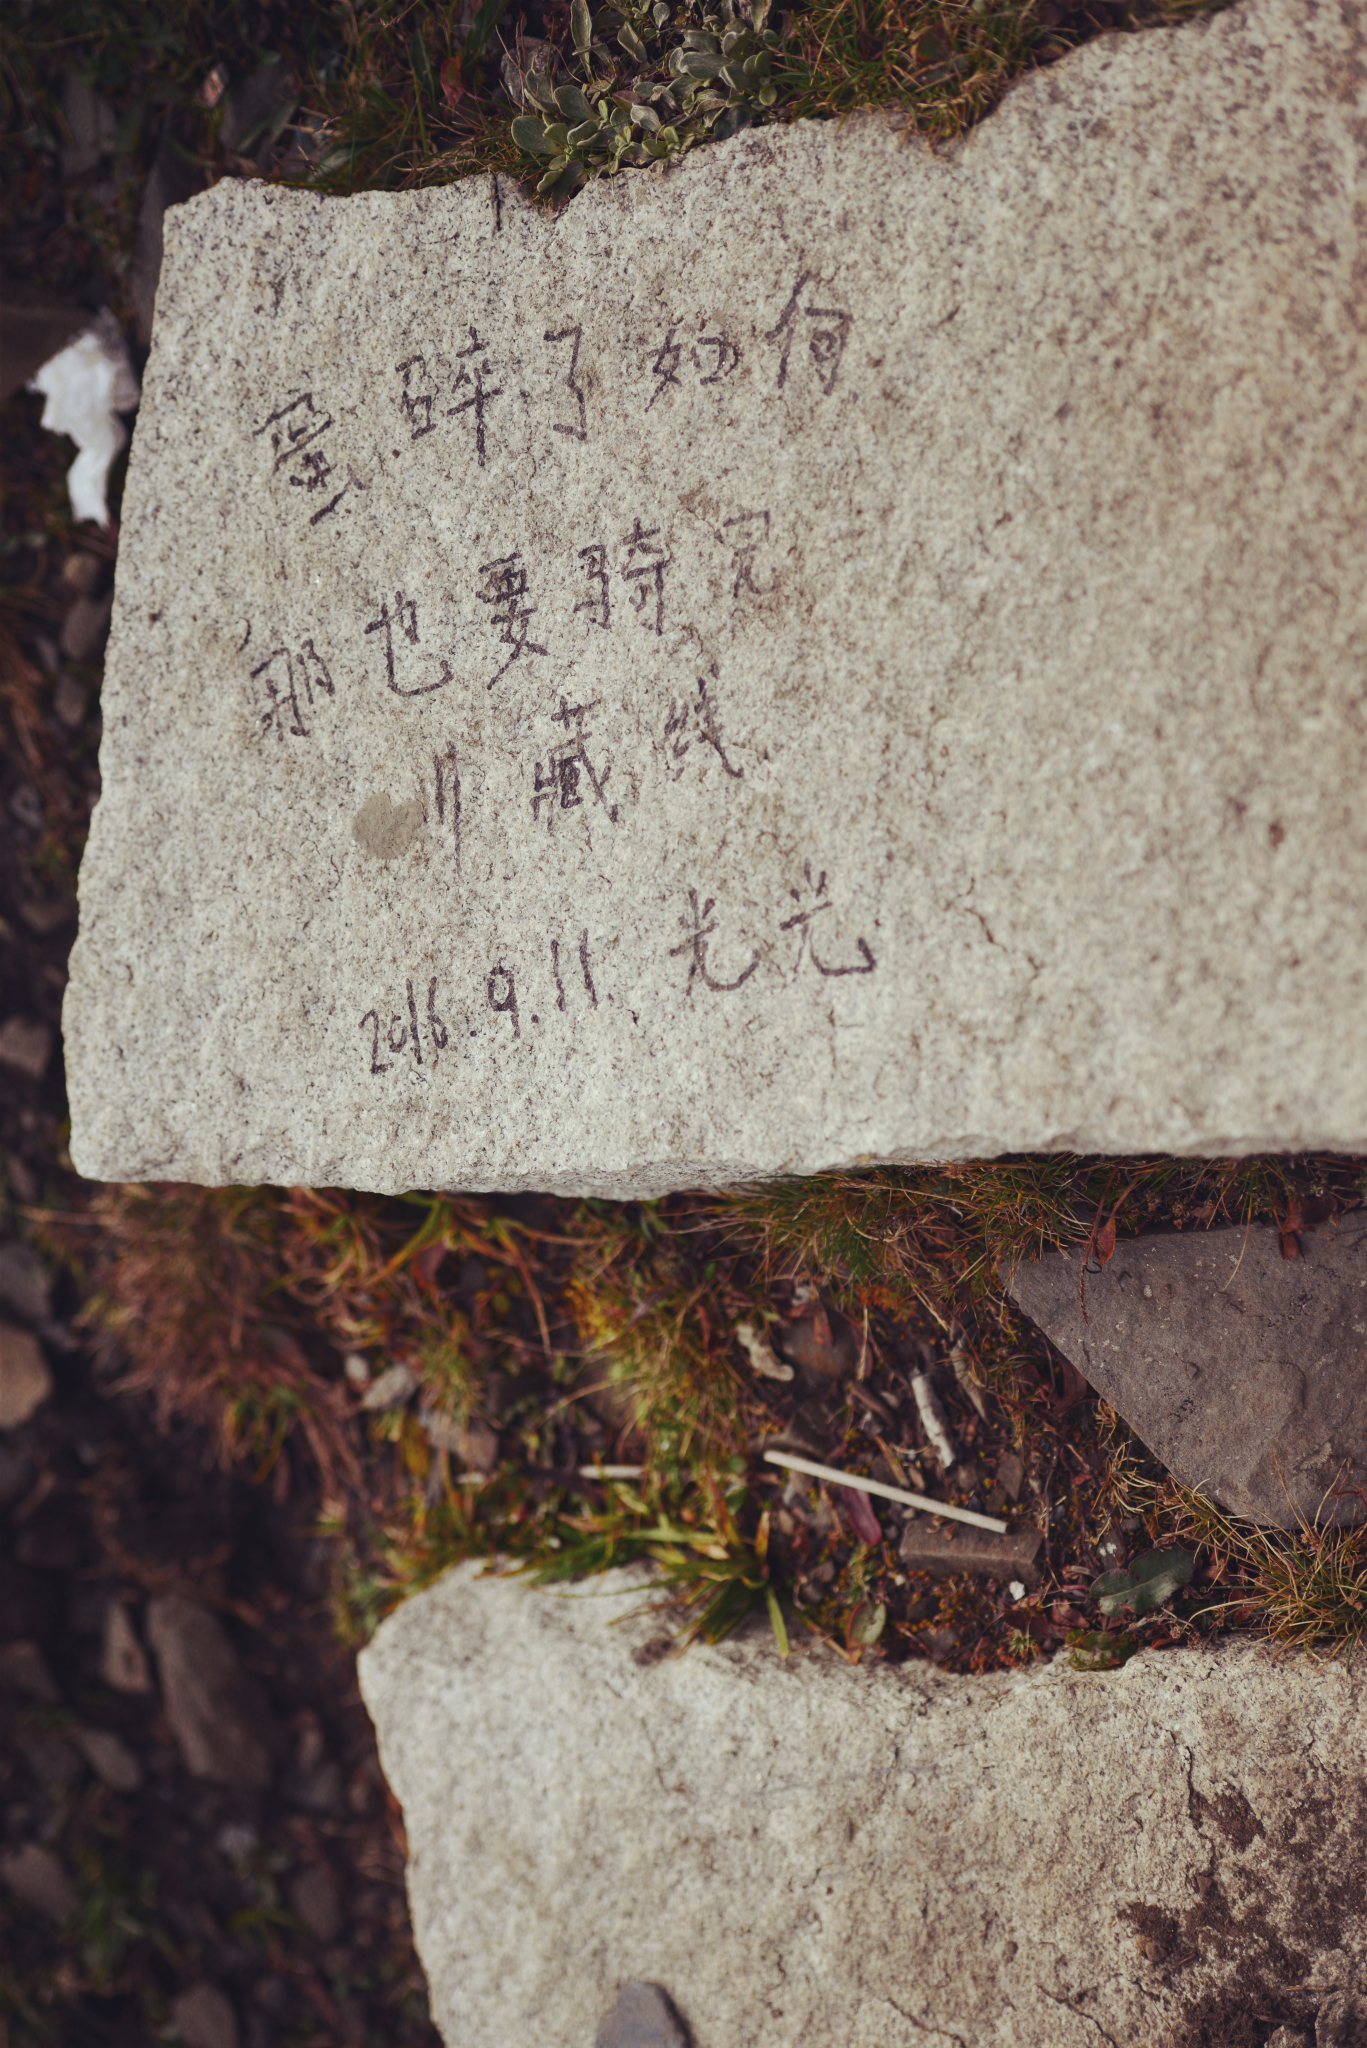 蛋碎了如何
那也要骑完
川藏线
2016.9.11 光光